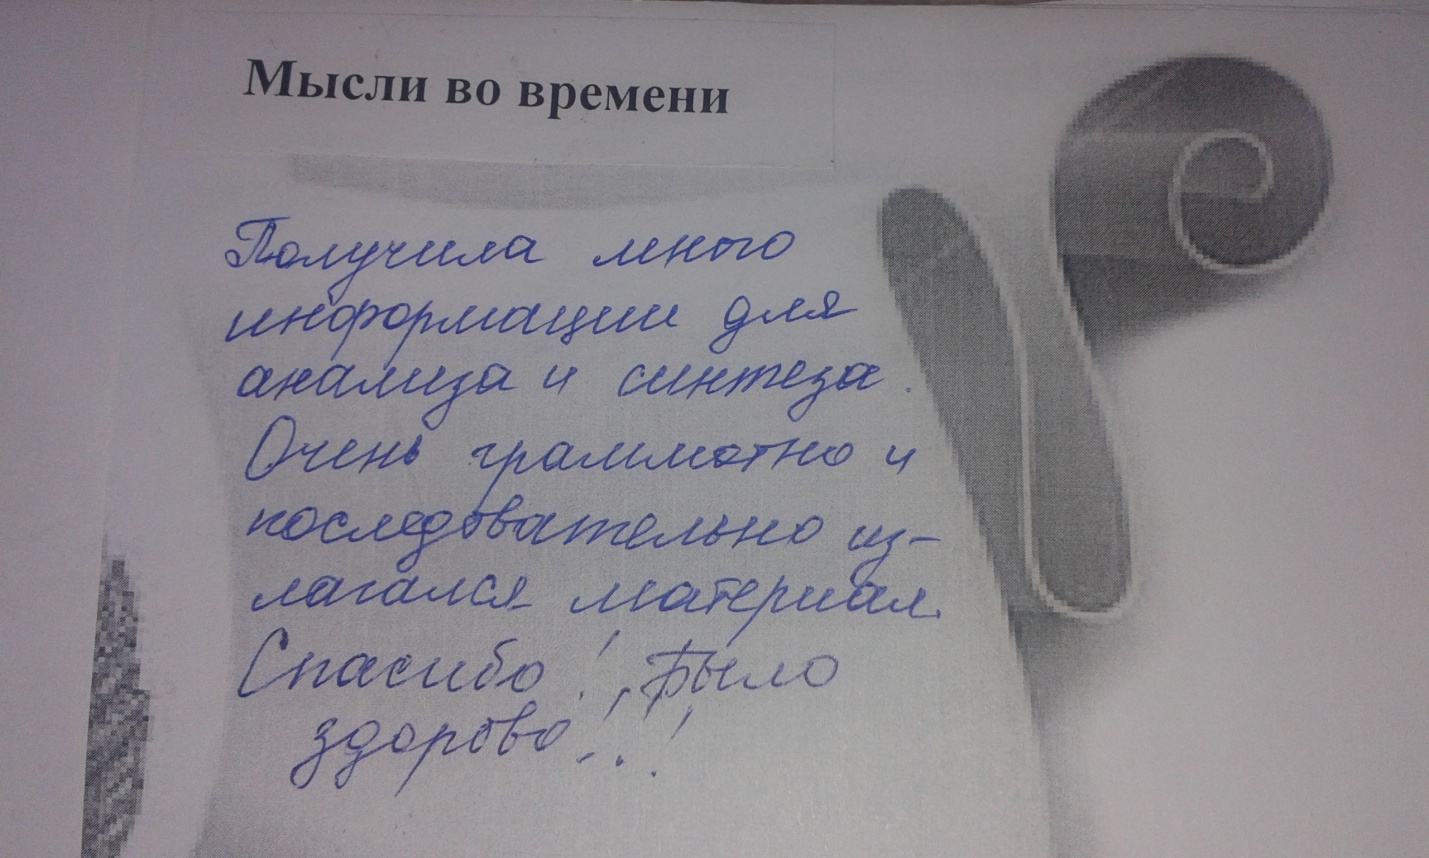 Мысли во времени
Получила много
информации для
анализа и синтеза.
Очень грамматно и
последовательно из-
лагался материал.
Спасибо! Было
здорово!!!